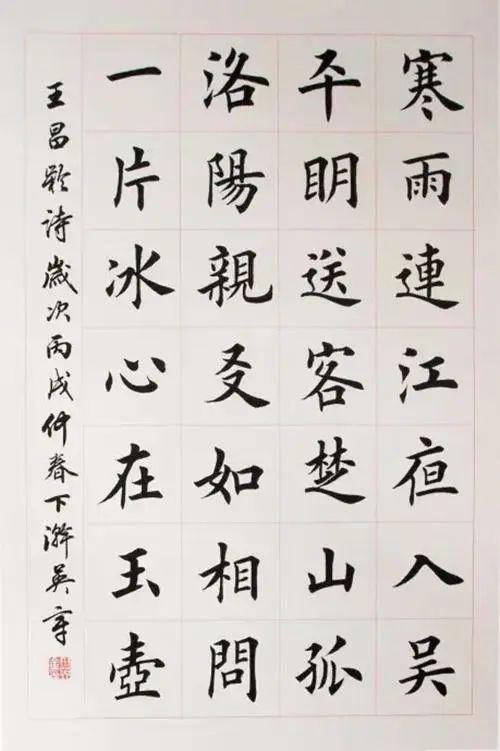 寒雨連江亱入吴
平眀送客楚山孤
洛陽親友如相問
一片冰心在玉壺
王昌齡詩歲次丙戌仲春下澣英